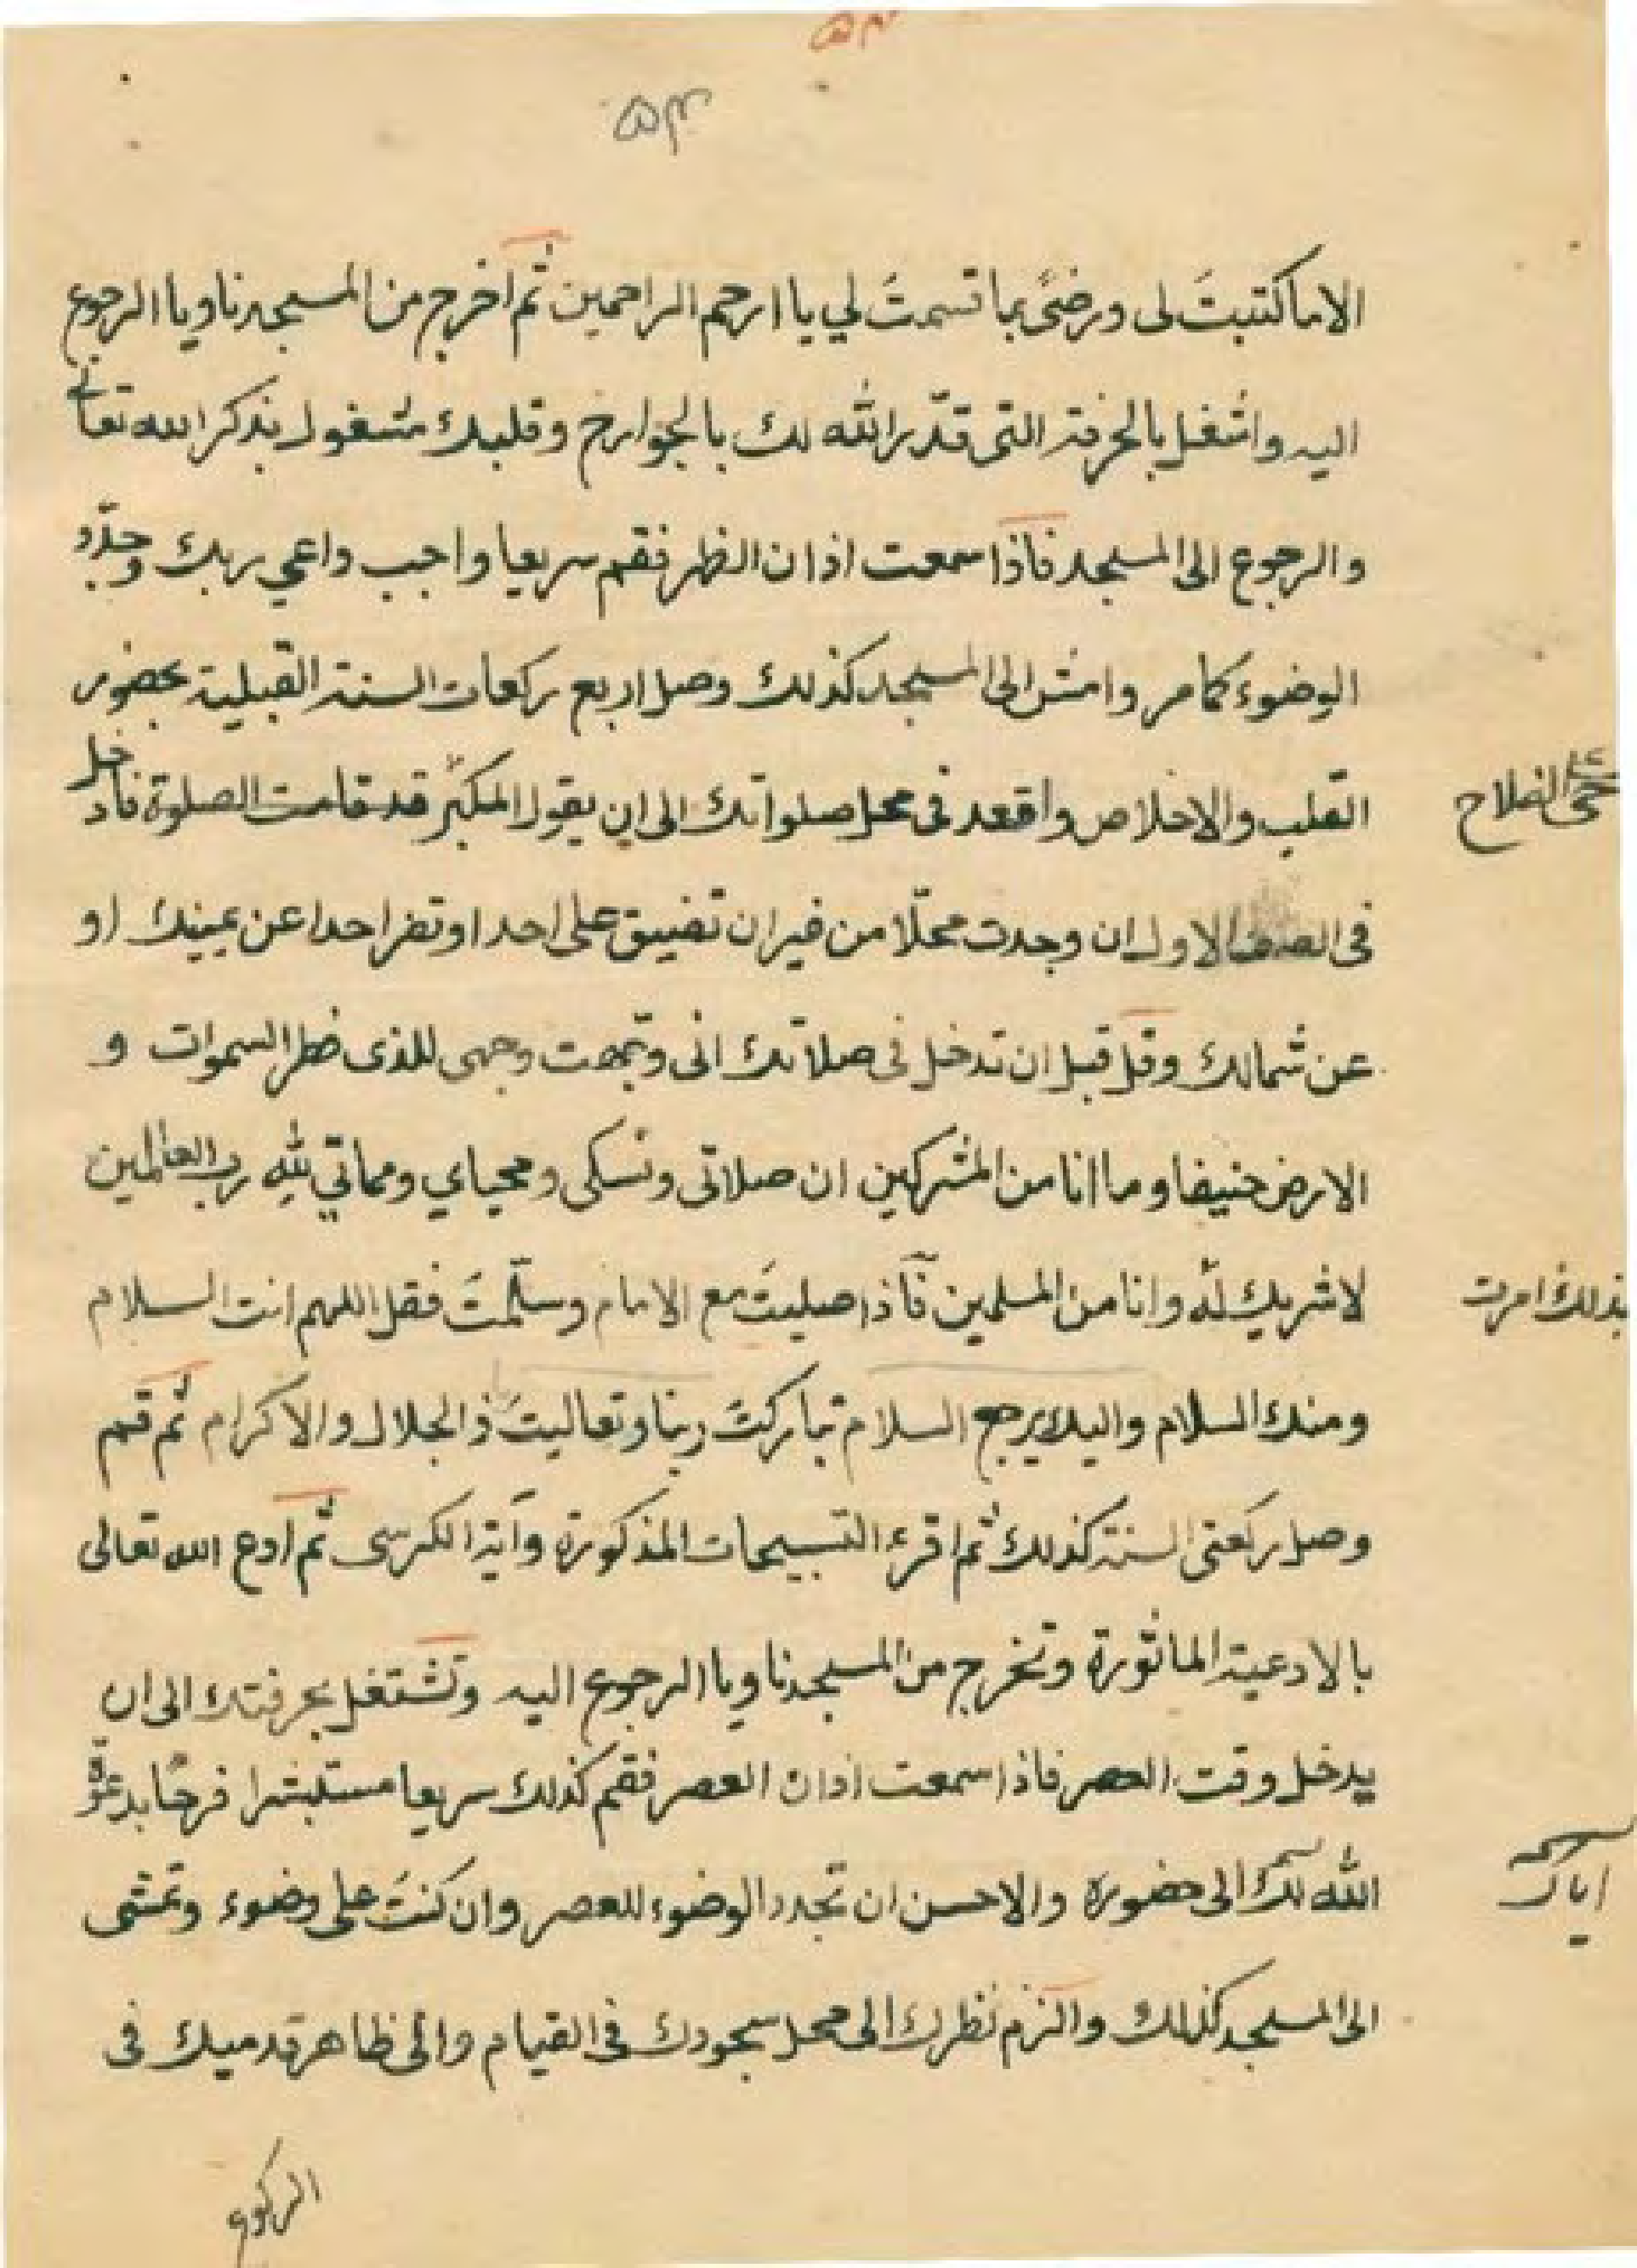 ٥٣
٥٣
الا ما كتبتَ لى ورضىً بما قسمتَ لي يا ارحم الراحمين ثم اخرج من المسجد ناويا الرجوع
اليه واشغل بالحرفة التى قدّر الله لك بالجوارح وقلبك مشغول بذكر الله تعالى
والرجوع الى المسجد فاذا سمعت اذان الظهر فقم سريعا واجب داعي ربك وجدّد
الوضوء كما مر وامش الى المسجد كذلك وصل اربع ركعات السنة القبلية بحضور
القلب والاخلاص واقعد فى محل صلواتك الى ان يقول المكبّر قد قامت الصلوة فادخل
حى على الفلاح
فى الصف الاول ان وجدت محلّا من غير ان تضيق على احد او تضر احدا عن يمينك او
عن شمالك وقل قبل ان تدخل فى صلاتك انى وجّهت وجهى للذى فطر السموات و
الارض حنيفا وما انا من المشركين ان صلاتى ونسكى ومحياي ومماتي للهِ رب العالمين
لا شريك لهُ وانا من المسلمين فاذا صليتَ مع الامام وسلّمتَ فقل اللهم انت السلام
بذلك امرت
ومنك السلام واليك يرجع السلام تباركتَ ربنا وتعاليتَ يا ذا الجلال والاكرام ثم قم
وصل ركعتى السنة كذلك ثم اقرء التسبيحات المذكورة وآية الكرسى ثم ادع الله تعالى
بالادعية الماثورة وتخرج من المسجد ناويا الرجوع اليه وتشتغل بحرفتك الى ان
يدخل وقت العصر فاذا سمعت اذان العصر فقم كذلك سريعا مستبشرا فرحًا بدعوة
الله لك الى حضوره والاحسن ان تجدد الوضوء للعصر وان كنتَ على وضوء وتمشى
اياك
الى المسجد كذلك والزم نظرك الى محل سجودك فى القيام والى ظاهر قدميك فى
الركوع